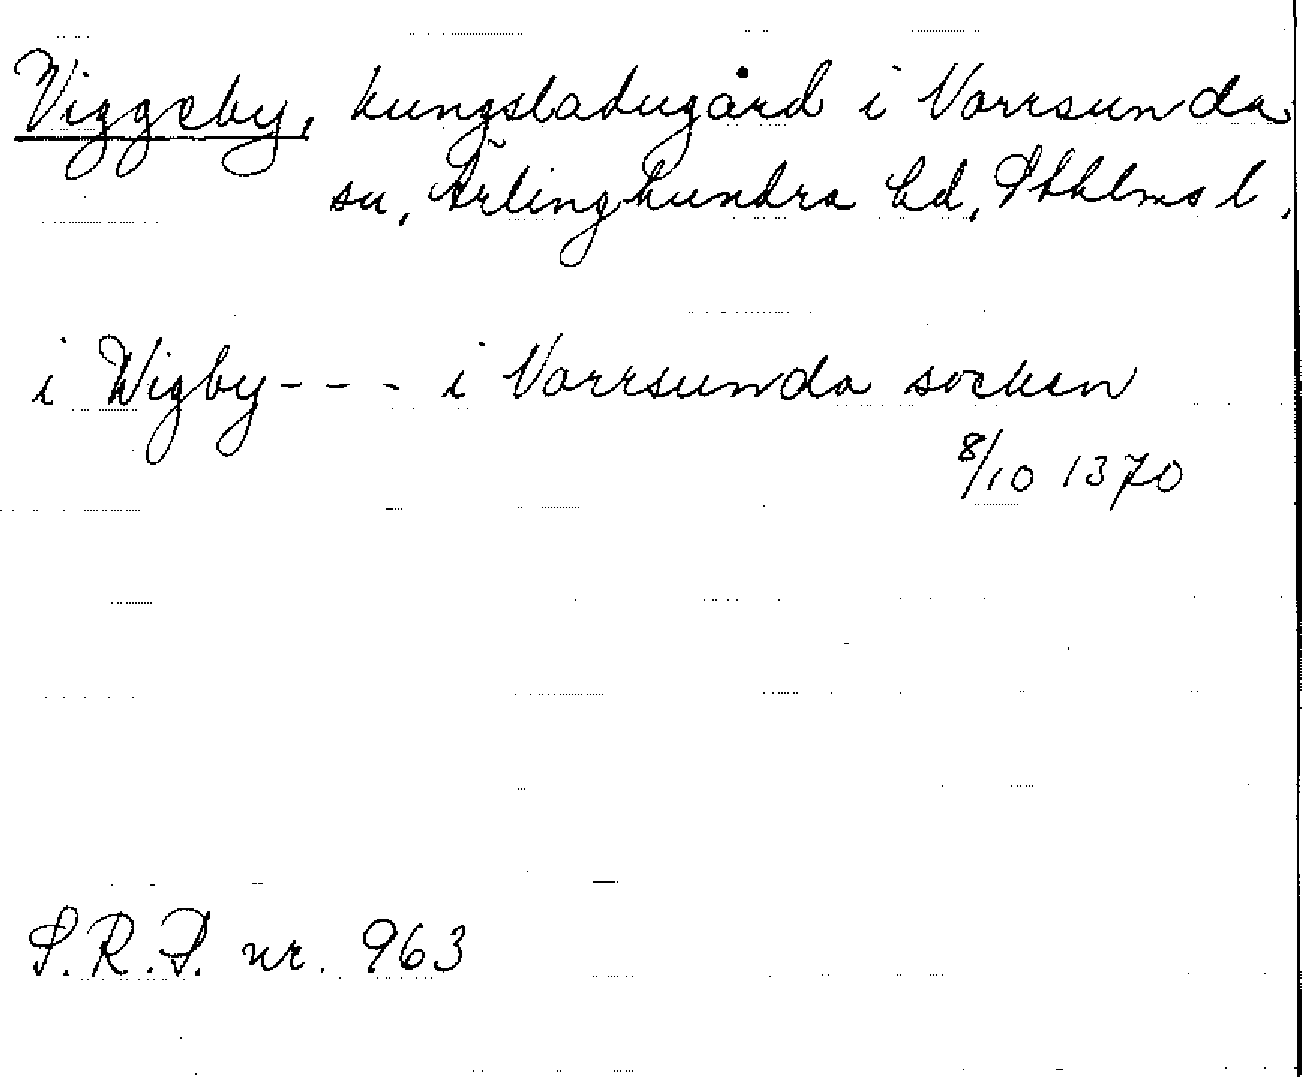 Viggeby, kungsladugård i Vorrsunda
sn, Ärlinghundra hd, Sthlms l,
i Wigby - - - i Vorrsunda socken
8/10 1370
S.R.P. nr. 963